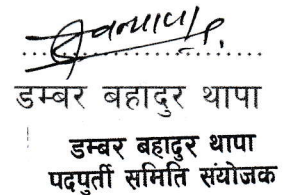 डम्बर बहादुर थापा
डम्बर बहादुर थापा
पदपुर्ती समिति संयोजक